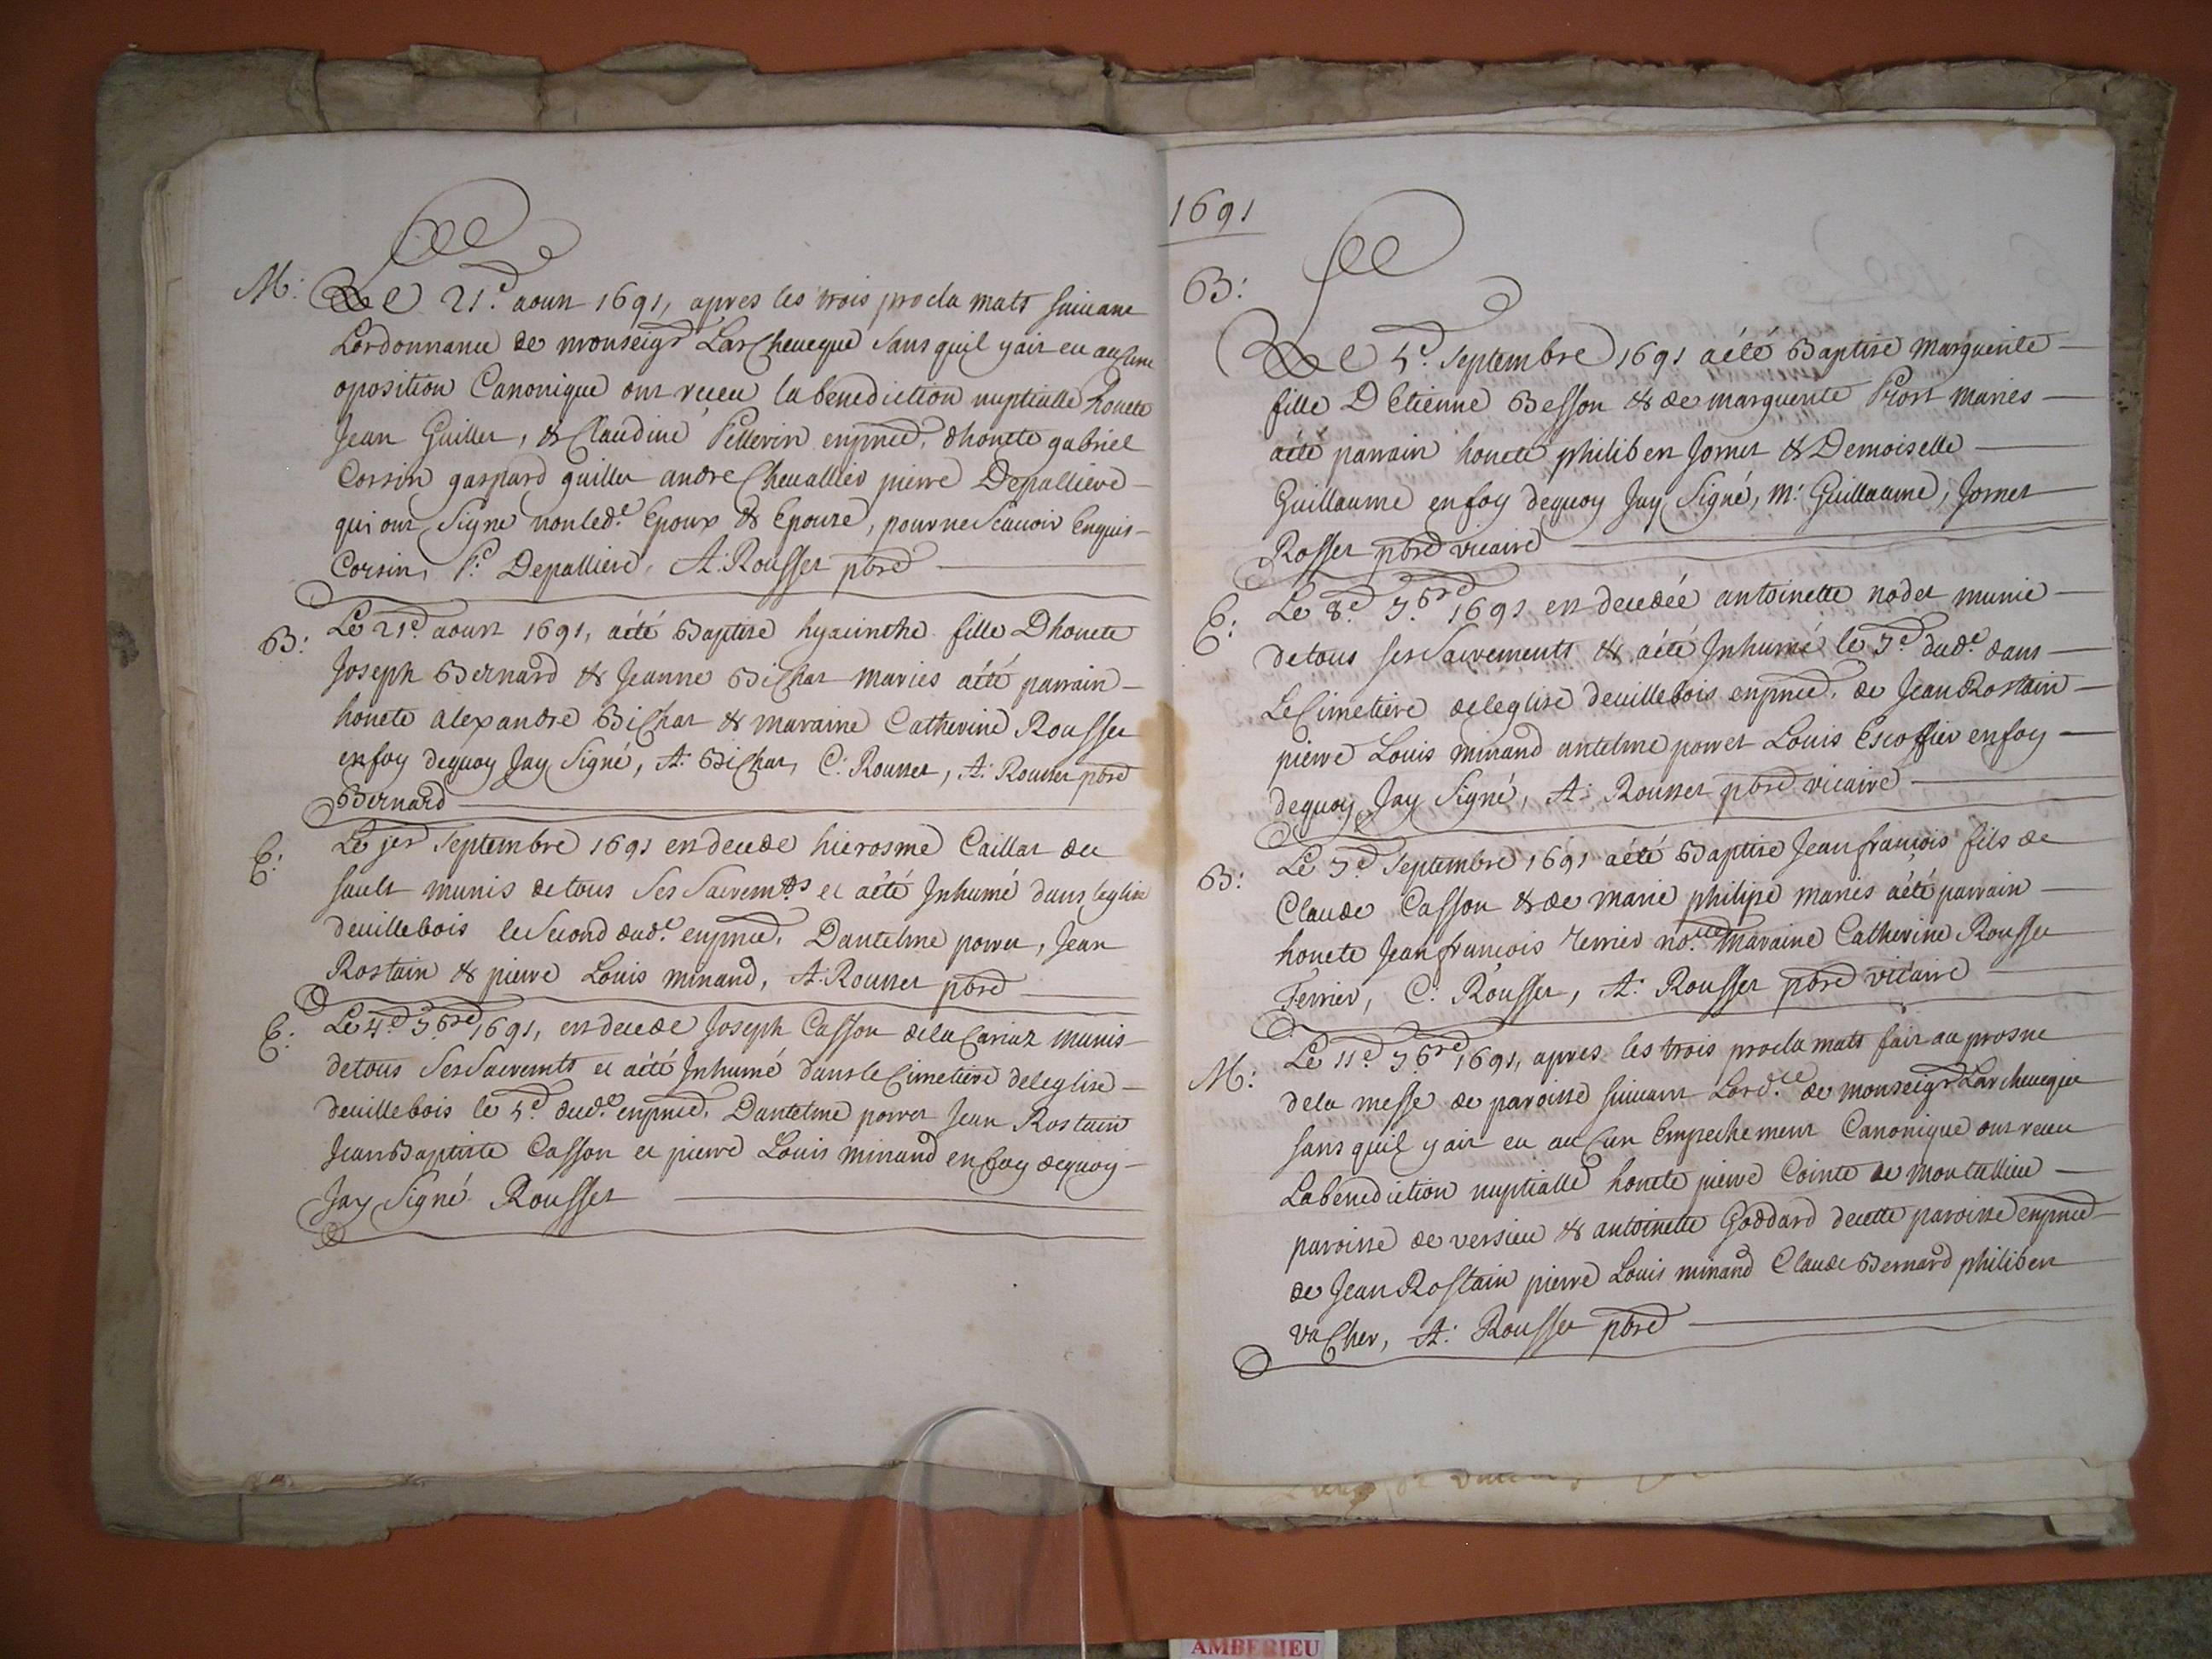 M: Le 21.e aoust 1691, apres les trois proclamats suivant
Lordonnance de monseigr LarCheueque sans quil yait eu auCune
oposition Canonique ont receu la benediction nuptialle honete
Jean Guillet, & Claudine Pellerin enpnce. dhonete gabriel
Corsin gaspard guillet andre Cheuallier pierre Depalliere
qui ont Signe non led.e Epoux & Epouze, pour ne Scauoir Enquis
Corsin, P.e Depalliere, A: Rousset pbre
B: Le 21e aoust 1691, aété Baptise hyacinthe fille Dhonete
Joseph Bernard & Jeanne BiChat maries aété parrain
honete alexandre BiChat & maraine Catherine Rousset
enfoy dequoy Jay Signé, A: BiChat, C: Rousset, A: Rousset pbre
Bernard
E: Le jer Septembre 1691 est decede hierosme Caillat du
sault munis de tous Ses Sacremts et aété Inhumé dans leglise
deuillebois le Second dud.e enpnce. Dantelme porret, Jean
Rostain & pierre Louis minand, A: Rousset pbre
E: Le 4e 7.bre 1691, est decede Joseph Casson dela Cariaz munis
detous Ses Sacremts et aété Inhumé dans le Cimetiere deleglise
deuillebois le 5e dud.e enpnce. Dantelme porret Jean Rostain
Jean Baptiste Casson et pierre Louis minand enfoy dequoy
Jay Signé Rousset
1691
B:
Le 5e. Septembre 1691 aété Baptise Marguerite
fille D Etienne Besson & de marguerite Prost maries
aété parrain honete philibert Jornet & Demoiselle
Guillaume enfoy dequoy Jay Signé, M: Guillaume, Jornet
Rosset pbre vicaire
E: Le 8.e 7.bre 1691 est decedée antoinette nodet munie
detous ses Sacrements & aété Inhumé le 9e dud.e dans
Le Cimetiere deleglise deuillebois enpnce. de Jean Rostain
pierre Louis minand antelme porret Louis Escoffier enfoy
dequoy Jay Signé, A: Rousset pbre vicaire
B: Le 9.e Septembre 1691 aété Baptise Jeanfrancois fils de
Claude Casson & de marie philipe maries aété parrain
honete Jeanfrancois Ferrier no.re Maraine Catherine Rousset
Ferrier, C: Rousset, A: Rousset pbre vicaire
M: Le 11e 7.bre 1691, apres les trois proclamats fait au prosne
dela messe de paroisse suivant Lord.ce de monseigr Larcheueque
sans quil yait eu auCun Empechement Canonique ont receu
Labenediction nuptialle honete pierre Cointe de Montallieu
paroisse de versieu & antoinette Goddard decette paroisse enpnce
de Jean Rostain pierre Louis minand Claude Bernard philibert
vaCher, A: Rousset pbre
AMBERIEU